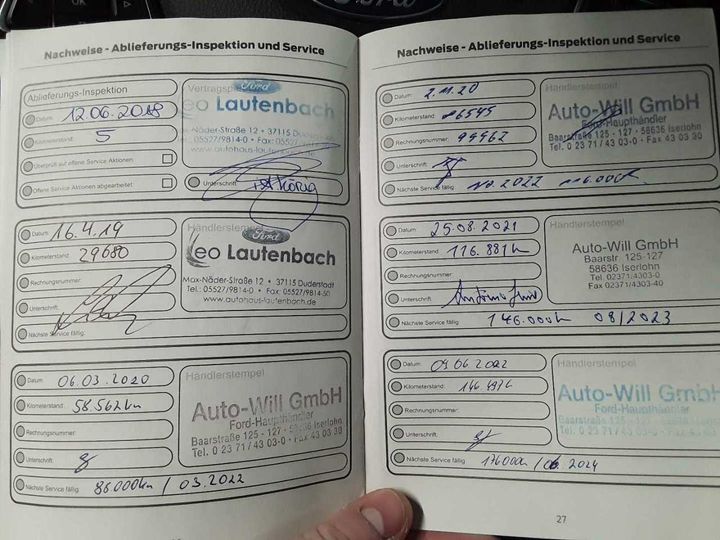 Nachweise - Ablieferungs-Inspektion und Service
Ablieferungs-Inspektion
Datum: 12.06.2018
Kilometerstand: 5
Überprüft auf offene Service Aktionen
Offene Service Aktionen abgearbeitet
Vertragspa
Ford
Leo Lautenbach
Max-Näder-Straße 12 • 37115 Duderstadt
Tel.: 05527/9814-0 • Fax: 05527/9814-50
www.autohaus-lautenbach.de
Unterschrift
Datum: 16.4.19
Kilometerstand: 29680
Rechnungsnummer:
Unterschrift:
Nächste Service fällig:
Händlerstempel
Ford
Leo Lautenbach
Max-Näder-Straße 12 • 37115 Duderstadt
Tel.: 05527/9814-0 • Fax: 05527/9814-50
www.autohaus-lautenbach.de
Datum: 06.03.2020
Kilometerstand: 58.562km
Rechnungsnummer:
Unterschrift:
Nächste Service fällig: 86000km / 03.2022
Händlerstempel
Auto-Will GmbH
Ford-Haupthändler
Baarstraße 125 - 127 - 58636 Iserlohn
Tel. 0 23 71 / 43 03-0 - Fax 43 03 30
Nachweise - Ablieferungs-Inspektion und Service
Datum: 2.11.20
Kilometerstand: 86545
Rechnungsnummer: 99962
Unterschrift:
Nächste Service fällig: 10.2022 116.000k
Händlerstempel
Auto-Will GmbH
Ford-Haupthändler
Baarstraße 125 - 127 - 58636 Iserlohn
Tel. 0 23 71 / 43 03-0 - Fax 43 03 30
Datum: 25.08.2021
Kilometerstand: 116.881k
Rechnungsnummer:
Unterschrift:
Nächste Service fällig 146.000k 08/2023
Händlerstempel
Auto-Will GmbH
Baarstr. 125-127
58636 Iserlohn
Tel. 02371/4303-0
Fax 02371/4303-40
Datum: 09.06.2022
Kilometerstand:
Rechnungsnummer:
Unterschrift:
Nächste Service fällig: 176000k / 06.2024
Händlerstempel
Auto-Will GmbH
Ford-Haupthändler
Baarstraße 125 - 127 - 58636 Iserlohn
Tel. 0 23 71 / 43 03-0 - Fax 43 03
27